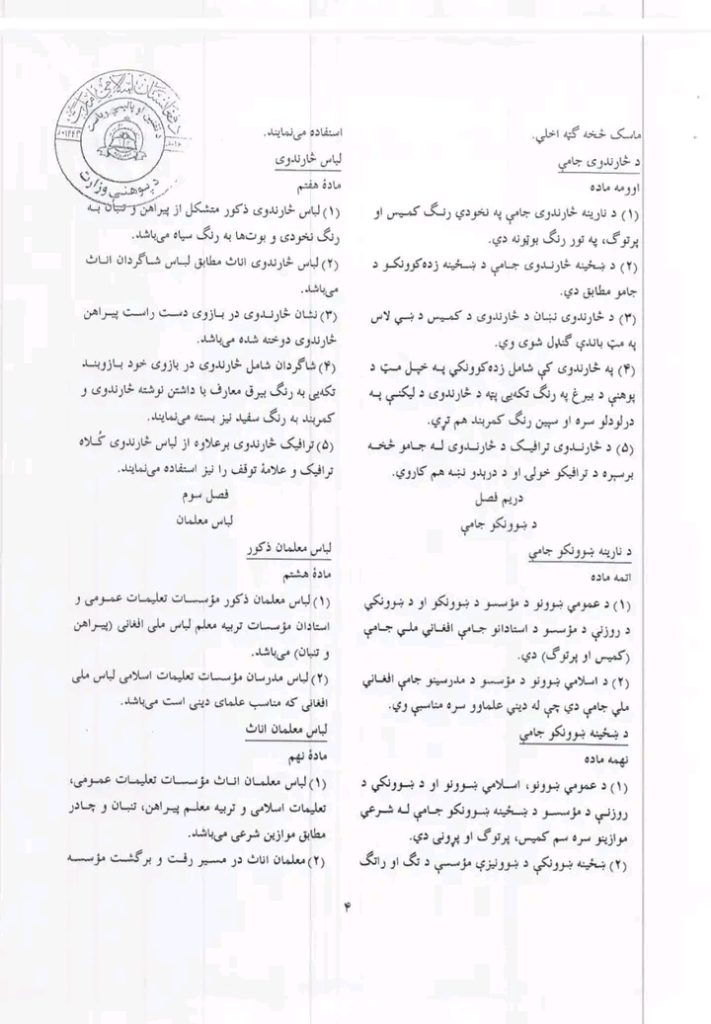 ماسک څخه ګټه اخلي.
د څارندوی جامې
اوومه ماده
(۱) د نارینه څارندوی جامې په نخودي رنګ کمیس او
پرتوګ، په تور رنګ بوټونه دي.
(۲) د ښځینه څارندوی جامې د ښځینه زده‌کوونکو د
جامو مطابق دي.
(۳) د څارندوی نښان د څارندوی د کمیس د ښي لاس
په مټ باندې ګنډل شوی وي.
(۴) په څارندوی کې شامل زده‌کوونکي په خپل مټ د
پوهنې د بیرغ په رنګ تکه‌یی پټه د څارندوی د لیکنې په
درلودلو سره او سپین رنګ کمربند هم تړي.
(۵) د څارندوی ترافیک د څارندوی له جامو څخه
برسېره د ترافیکو خولۍ او د درېدو نښه هم کاروي.
دریم فصل
د ښوونکو جامې
د نارینه ښوونکو جامې
اتمه ماده
(۱) د عمومي ښوونو د مؤسسو د ښوونکو او د ښوونکي
د روزنې د مؤسسو د استادانو جامې افغاني ملي جامې
(کمیس او پرتوګ) دي.
(۲) د اسلامي ښوونو د مؤسسو د مدرسینو جامې افغاني
ملي جامې دي چې له دیني علماوو سره مناسبې وي.
د ښځینه ښوونکو جامې
نهمه ماده
(۱) د عمومي ښوونو، اسلامي ښوونو او د ښوونکي د
روزنې د مؤسسو د ښځینه ښوونکو جامې له شرعي
موازینو سره سم کمیس، پرتوګ او پړونی دي.
(۲) ښځینه ښوونکې د ښوونیزې مؤسسې د تګ او راتګ
استفاده می‌نمایند.
لباس څارندوی
مادهٔ هفتم
(۱) لباس څارندوی ذکور متشکل از پیراهن و تنبان به
رنگ نخودی و بوت‌ها به رنگ سیاه می‌باشد.
(۲) لباس څارندوی اناث مطابق لباس شاگردان اناث
می‌باشد.
(۳) نشان څارندوی در بازوی دست راست پیراهن
څارندوی دوخته شده می‌باشد.
(۴) شاگردان شامل څارندوی در بازوی خود بازوبند
تکه‌یی به رنگ بیرق معارف با داشتن نوشته څارندوی و
کمربند به رنگ سفید نیز بسته می‌نمایند.
(۵) ترافیک څارندوی برعلاوه از لباس څارندوی کُلاه
ترافیک و علامهٔ توقف را نیز استفاده می‌نمایند.
فصل سوم
لباس معلمان
لباس معلمان ذکور
مادهٔ هشتم
(۱) لباس معلمان ذکور مؤسسات تعلیمات عمومی و
استادان مؤسسات تربیه معلم لباس ملی افغانی (پیراهن
و تنبان) می‌باشد.
(۲) لباس مدرسان مؤسسات تعلیمات اسلامی لباس ملی
افغانی که مناسب علمای دینی است می‌باشد.
لباس معلمان اناث
مادهٔ نهم
(۱) لباس معلمان اناث مؤسسات تعلیمات عمومی،
تعلیمات اسلامی و تربیه معلم پیراهن، تنبان و چادر
مطابق موازین شرعی می‌باشد.
(۲) معلمان اناث در مسیر رفت و برگشت مؤسسه
۴
د پوهنې وزارت